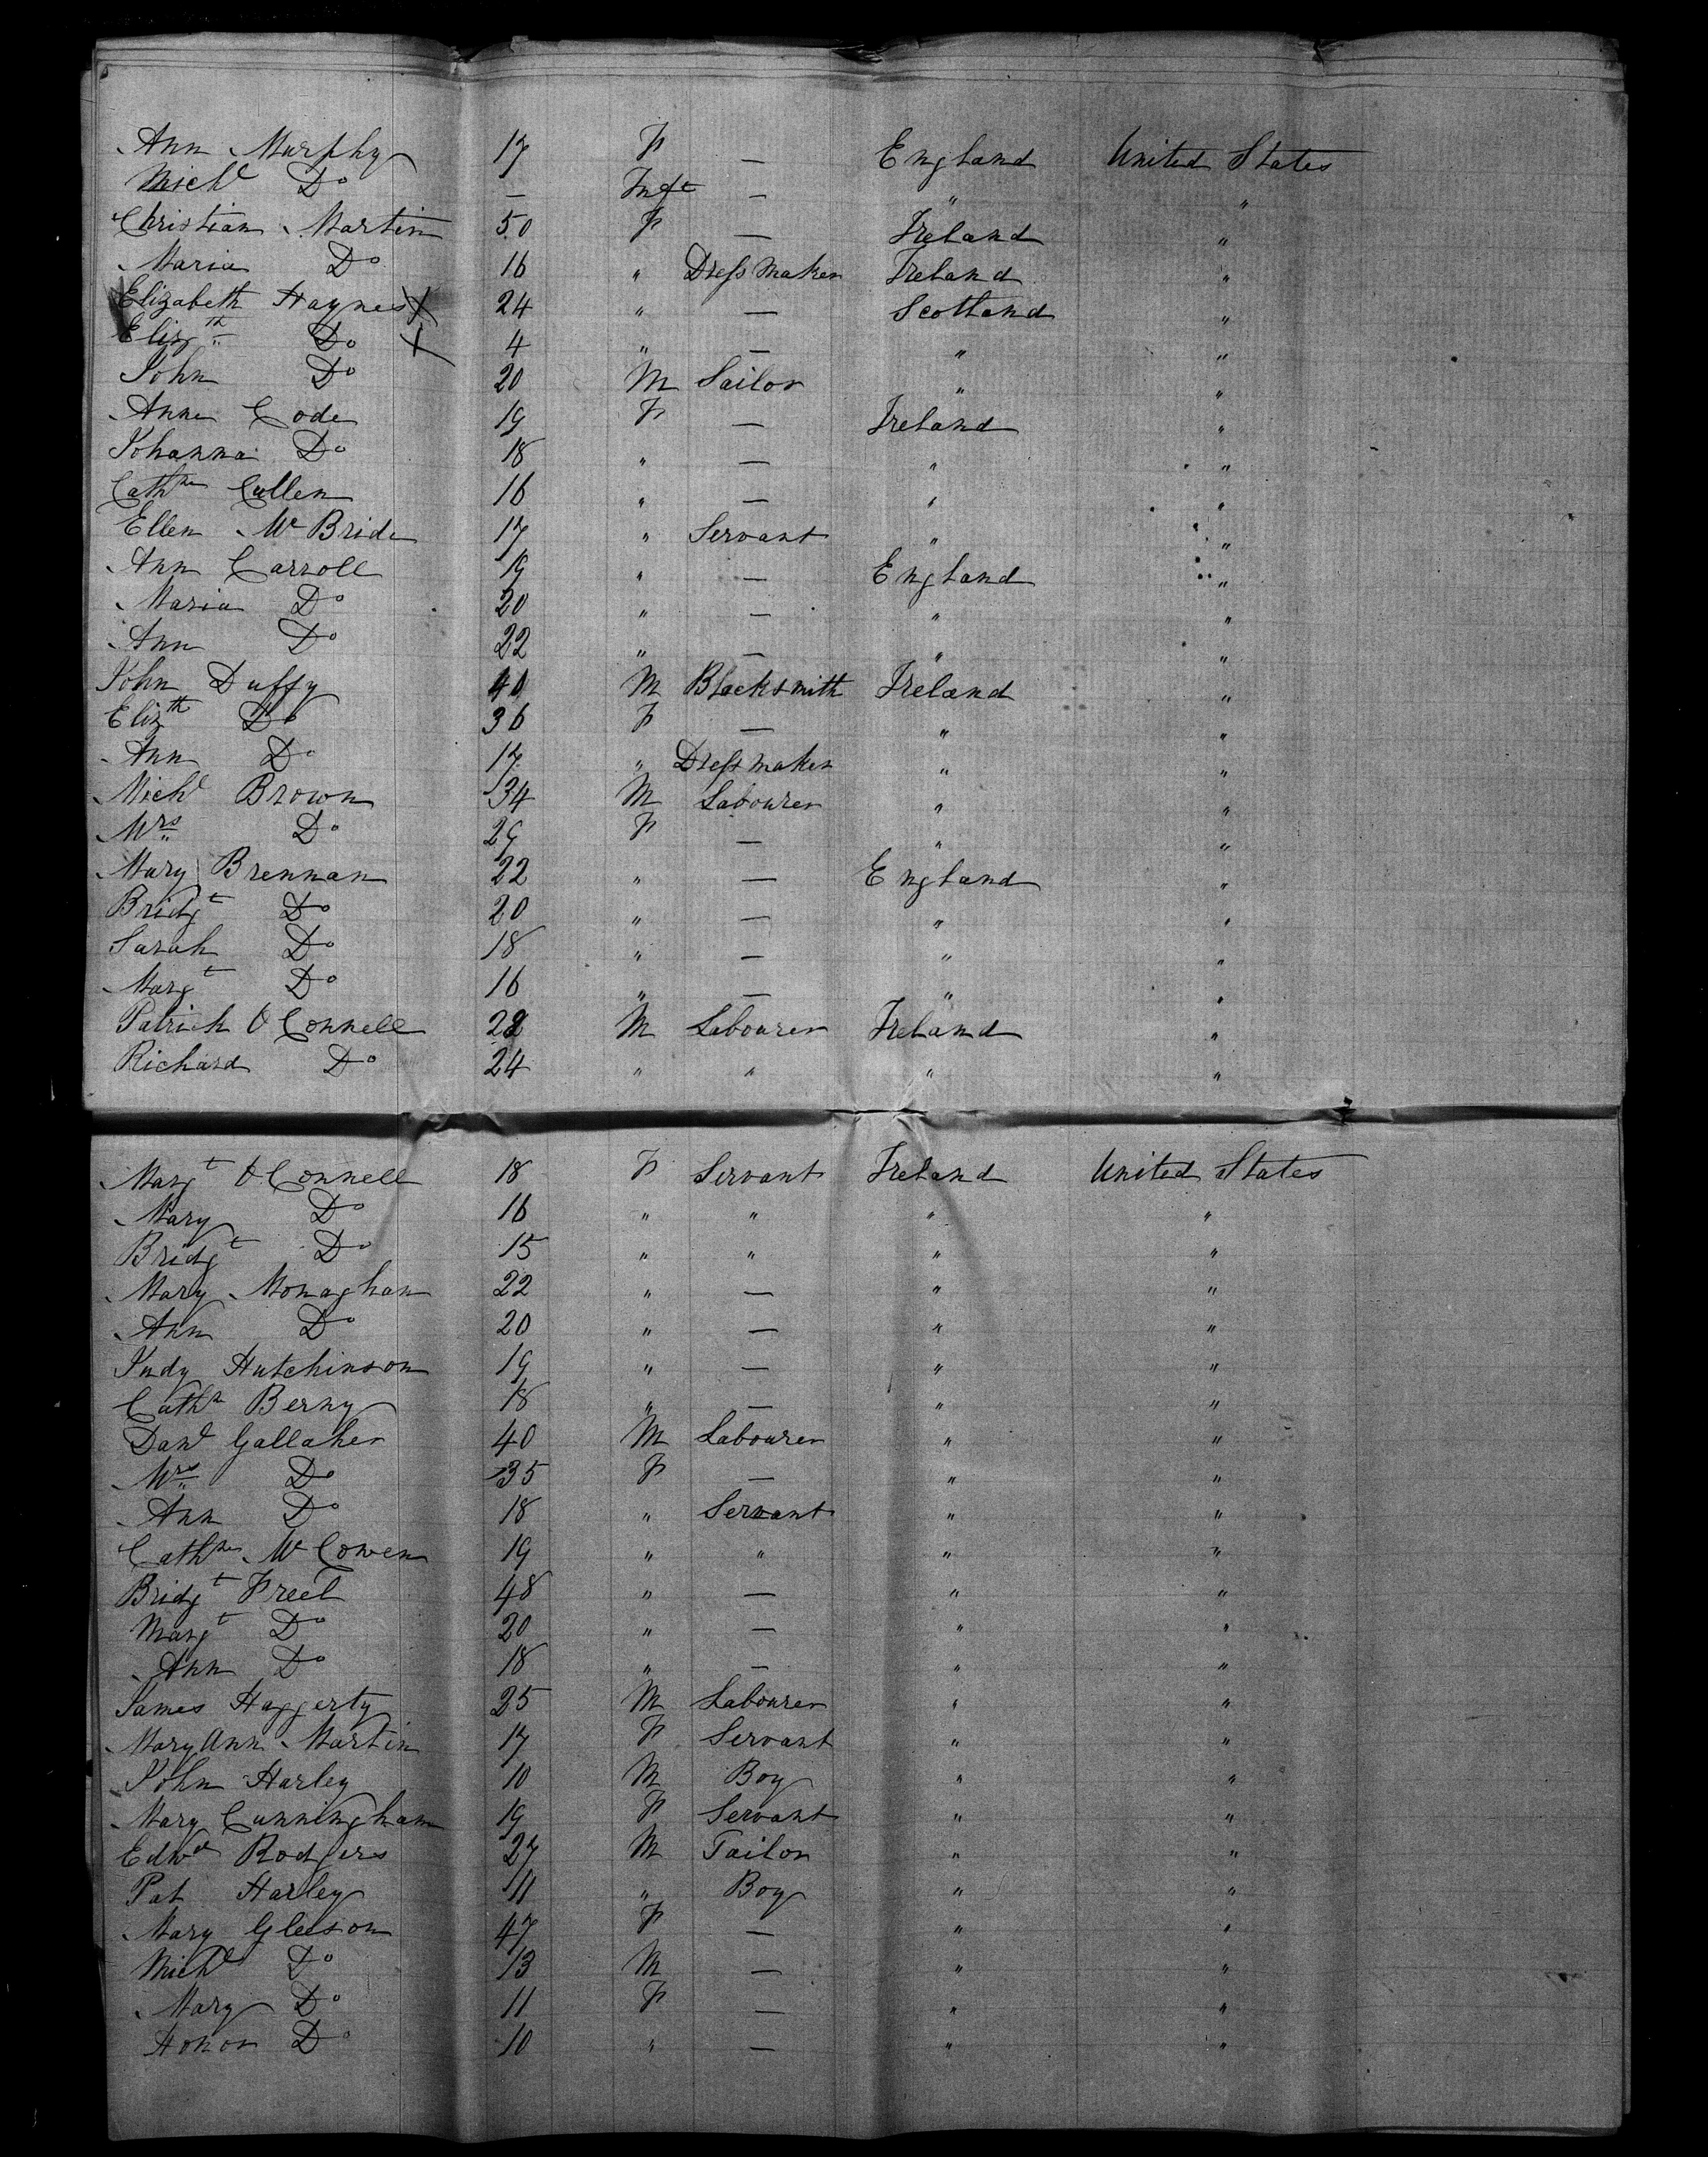 Ann Murphy 17 F — England United States
Michl Do — Inft — " "
Christian Martin 50 F — Ireland "
Maria Do 16 " Dress Maker Ireland "
Elizabeth Haynes X 24 " — Scotland "
Elizth Do X 4 " — " "
John Do 20 M Sailor " "
Anne Code 19 F — Ireland "
Johanna Do 18 " — " "
Cathne Cullen 16 " — " "
Ellen McBride 17 " Servant " "
Ann Carroll 19 " — England "
Maria Do 20 " — " "
Ann Do 22 " — " "
John Duffy 40 M Blacksmith Ireland "
Elizth Do 36 F — " "
Ann Do 17 " Dress maker " "
Michl Brown 34 M Labourer " "
Mrs Do 29 F — " "
Mary Brennan 22 " — England "
Bridgt Do 20 " — " "
Sarah Do 18 " — " "
Margt Do 16 " — " "
Patrick O Connell 22 M Labourer Ireland "
Richard Do 24 " " " "
Margt O Connell 18 F Servant Ireland United States
Mary Do 16 " " " "
Bridgt Do 15 " " " "
Mary Monaghan 22 " — " "
Ann Do 20 " — " "
Judy Hutchinson 19 " — " "
Cathn Berny 18 " — " "
Danl Gallaher 40 M Labourer " "
Mrs Do 35 F — " "
Ann Do 18 " Servant " "
Cathne McCowen 19 " " " "
Bridgt Freel 48 " — " "
Margt Do 20 " — " "
Ann Do 18 " — " "
James Haggerty 25 M Labourer " "
Mary Ann Martin 17 F Servant " "
John Harley 10 M Boy " "
Mary Cunningham 19 F Servant " "
Edwd Rodgers 27 M Tailor " "
Pat Harley 11 " Boy " "
Mary Gleeson 47 F — " "
Michl Do 13 M — " "
Mary Do 11 F — " "
Honor Do 10 " — " "